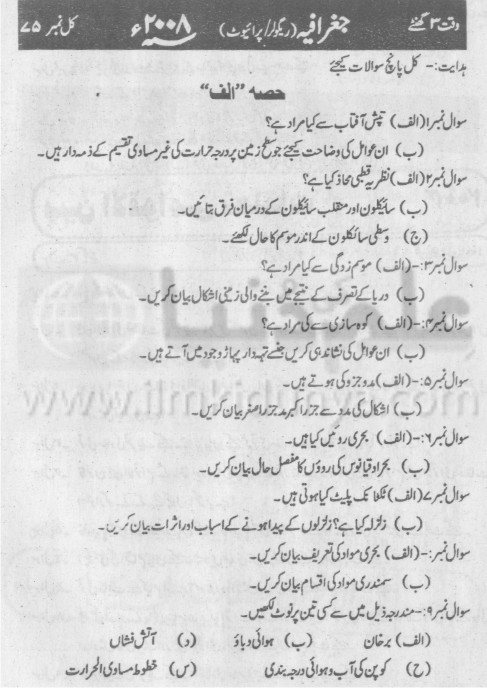 وقت ۳ گھنٹے جغرافیہ (ریگولر/پرائیوٹ) سنہ ۲۰۰۸ء کل نمبر ۷۵
ہدایت:- کل پانچ سوالات کیجئے
حصہ "الف"
سوال نمبر ۱ (الف) تپش آفتاب سے کیا مراد ہے؟
(ب) ان عوامل کی وضاحت کیجئے جو سطح زمین پر درجہ حرارت کی غیر مساوی تقسیم کے ذمہ دار ہیں۔
سوال نمبر ۲ (الف) نظریہ قطبی محاذ کیا ہے؟
(ب) سائیکلون اور منقلب سائیکلون کے درمیان فرق بتائیں۔
(ج) وسطی سائکلون کے اندر موسم کا حال لکھئے۔
سوال نمبر ۳:- (الف) موسم زدگی سے کیا مراد ہے؟
(ب) دریا کے تصرف کے نتیجے میں بننے والی زمینی اشکال بیان کریں۔
سوال نمبر ۴:- (الف) کوہ سازی سے کی مراد ہے؟
(ب) ان عوامل کی نشاندہی کریں جنسے تہہ دار پہاڑ وجود میں آتے ہیں۔
سوال نمبر ۵:- (الف) مدوجزو کی ہوتے ہیں۔
(ب) اشکال کی مدد سے جزر اکبر مدجزر اصغر بیان کریں۔
سوال نمبر ۶:- (الف) بحری روئیں کیا ہیں۔
(ب) بحراوقیانوس کی روؤں کا مفصل حال بیان کریں۔
سوال نمبر ۷ (الف) ٹکٹانک پلیٹ کیا ہوتی ہیں۔
(ب) زلزلہ کیا ہے؟ زلزلوں کے پیدا ہونے کے اسباب اور اثرات بیان کریں۔
سوال نمبر :- (الف) بحری مواد کی تعریف بیان کریں۔
(ب) سمندری مواد کی اقسام بیان کریں۔
سوال نمبر ۹:- مندرجہ ذیل میں سے کسی تین پر نوٹ لکھیں۔
(الف) برخان (ب) ہوائی دباؤ (د) آتش فشاں
(ح) کوپن کی آب و ہوائی درجہ بندی (س) خطوط مساوی الحرارت
علم کی دنیا
www.ilmkidunya.com